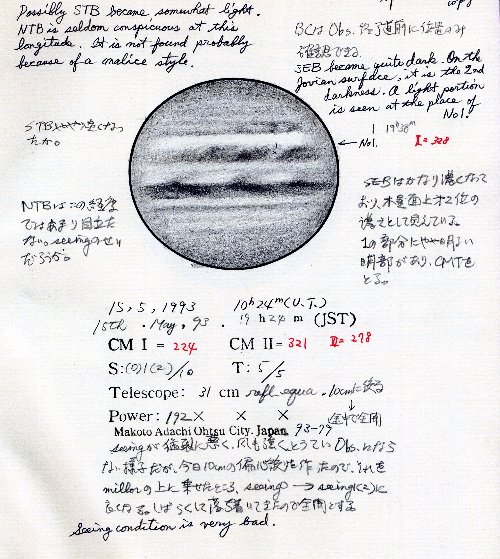 Possibly STB became somewhat light.
NTB is seldom conspicuous at this
longitude. It is not found probably
because of a malice style.
BCは Obs. 終了直前に位置のみ
確認できる
SEB became quite dark. On the
Jovian surface, it is the 2nd
darkness. A light portion
is seen at the place of
No1.
STBはやや淡くなっ
たか。
1 19h38m
←No1. II = 328
NTBはこの経度
ではあまり目立た
ない。seeingのせい
だろうか。
SEBはかなり濃くなって
おり、木星面上才2位の
濃さとして見えている。
1の部分にやや明るい
明部があり、CMTを
とる。
15, 5, 1993 10h24m (U.T.)
15th. May, 93. 19h24m (JST)
CM I = 224 CM II = 321 III = 278
S:(0)1(2)/10 T: 5/5
Telescope: 31 cm refl. equa. 10cmに絞る
↓
途中で全開
Power: 192× × ×
Makoto Adachi Ohtsu City, Japan 93-79
seeingが猛烈に悪く、風も強くとうてい Obs. になら
ない様子だが、今日10cmの偏心絞を作ったので、それを
mirrorの上に乗せたところ、seeing0 → seeing(2)に
良くなる。しばらくして落ち着いてきたので全開とする
Seeing condition is very bad.